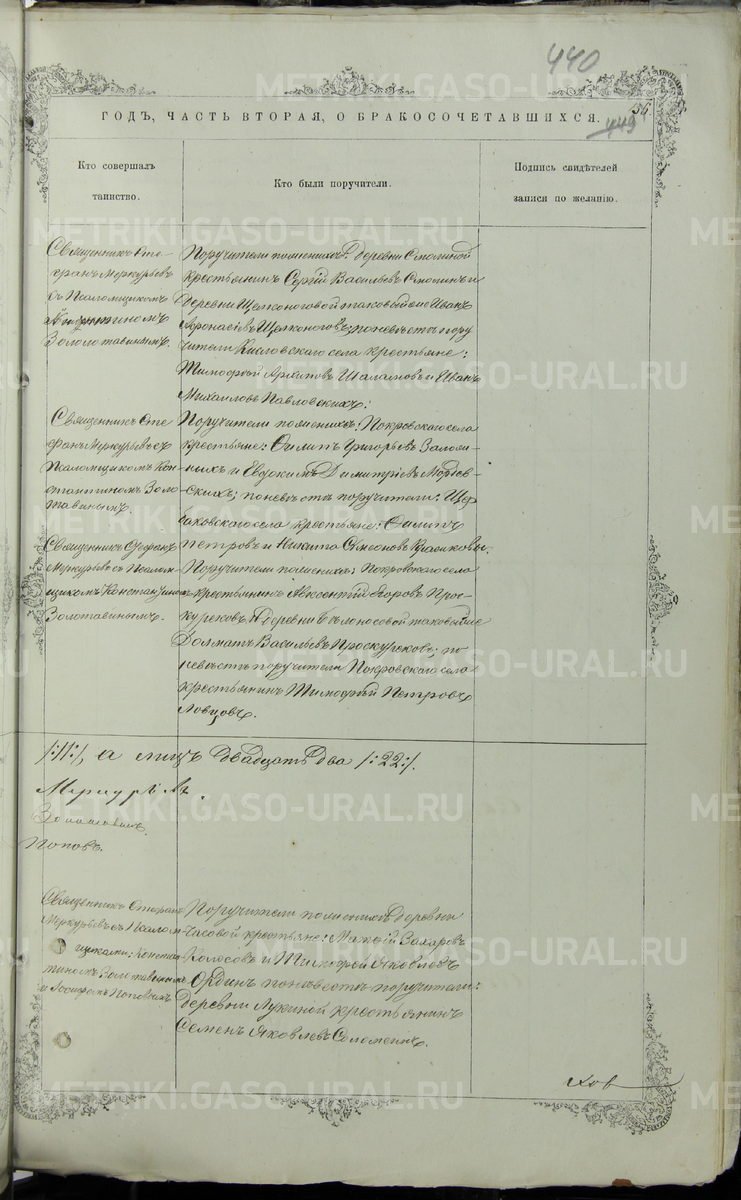 440
ГОДЪ, ЧАСТЬ ВТОРАЯ, О БРАКОСОЧЕТАВШИХСЯ.
449
Кто совершалъ
таинство.
Кто были поручители.
Подпись свидѣтелей
записи по желанію.
Священникъ Сте-
фанъ Меркурьевъ
съ Псаломщикомъ
Константиномъ
Золотавинымъ.
Поручители по женихѣ: деревни Смолиной
крестьянинъ Сергій Васильевъ Смолинъ и
деревни Щелконоговой таковый же Иванъ
Афонасьевъ Щелконоговъ; по невѣстѣ пору
чители Кисловскаго села крестьяне:
Тимофей Архиповъ Шаламовъ и Иванъ
Михаиловъ Павловскихъ.
Священникъ Сте
фанъ Меркурьевъ съ
Псаломщикомъ Кон
стантиномъ Золо
тавинымъ.
Поручители по женихѣ: Покровскаго села
крестьяне: Филипъ Григорьевъ Залом-
ныхъ и Евдокимъ Димитріевъ
скихъ; по невѣстѣ поручители: Щер
баковскаго села крестьяне: Филипъ
Петровъ и Никита Симеоновъ Красиковы.
Священникъ Стефанъ
Меркурьевъ съ Псалом
щикомъ Константиномъ
Золотавинымъ.
Поручители по женихѣ: Покровскаго села
крестьянинъ Авксентій Егоровъ Прос
куряковъ и деревни Бѣлоносовой таковый же
Долматъ Васильевъ Проскуряковъ; по
невѣстѣ поручители Покровскаго села
крестьянинъ Тимофей Петровъ
Ловцовъ.
/:11:/, а лицъ двадцать два /:22:/.
Меркурьевъ.
Золотавинъ.
Поповъ.
Священникъ Стефанъ
Меркурьевъ съ Псалом
щиками: Констан
тиномъ Золотавинымъ
и Іосифомъ Поповымъ
Поручители по женихѣ деревни
Часовой крестьяне: Захаровъ
Колосовъ и Тимофей Яковлевъ
по невѣстѣ поручители:
деревни Лукиной крестьянинъ
Семенъ Яковлевъ Соломеинъ.
ховъ
METRIKI.GASO-URAL.RU